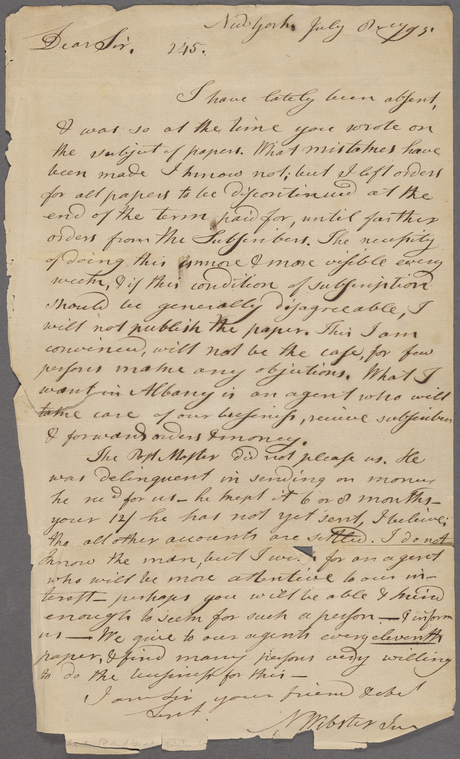 New York July 8 1795.
Dear Sir. 245.
I have lately been absent,
& was so at the time you wrote on
the subject of papers. What mistakes have
been made I know not; but I left orders
for all papers to be discontinued at the
end of the term paid for, until further
orders from the Subscribers. The necessity
of doing this is more & more visible every
week, & if this condition of subscription
should be generally disagreeable, I
will not publish the paper. This I am
convinced, will not be the case, for few
persons make any objections. What I
want in Albany is an agent who will
take care of our business, receive subscribers
& forward orders & money.
The Post Master did not please us. He
was delinquent in sending on money
he recd for us— he kept it 6 or 8 months—
your 12/ he has not yet sent, I believe;
tho all other accounts are settled. I do not
know the man, but I for an agent
who will be more attentive to our in-
terest— perhaps you will be able & kind
enough to seek for such a person— & inform
us— We give to our agents every eleventh
paper, & find many persons very willing
to do the business for this—
I am Sir your friend & obet
Servt.
N Webster Jun